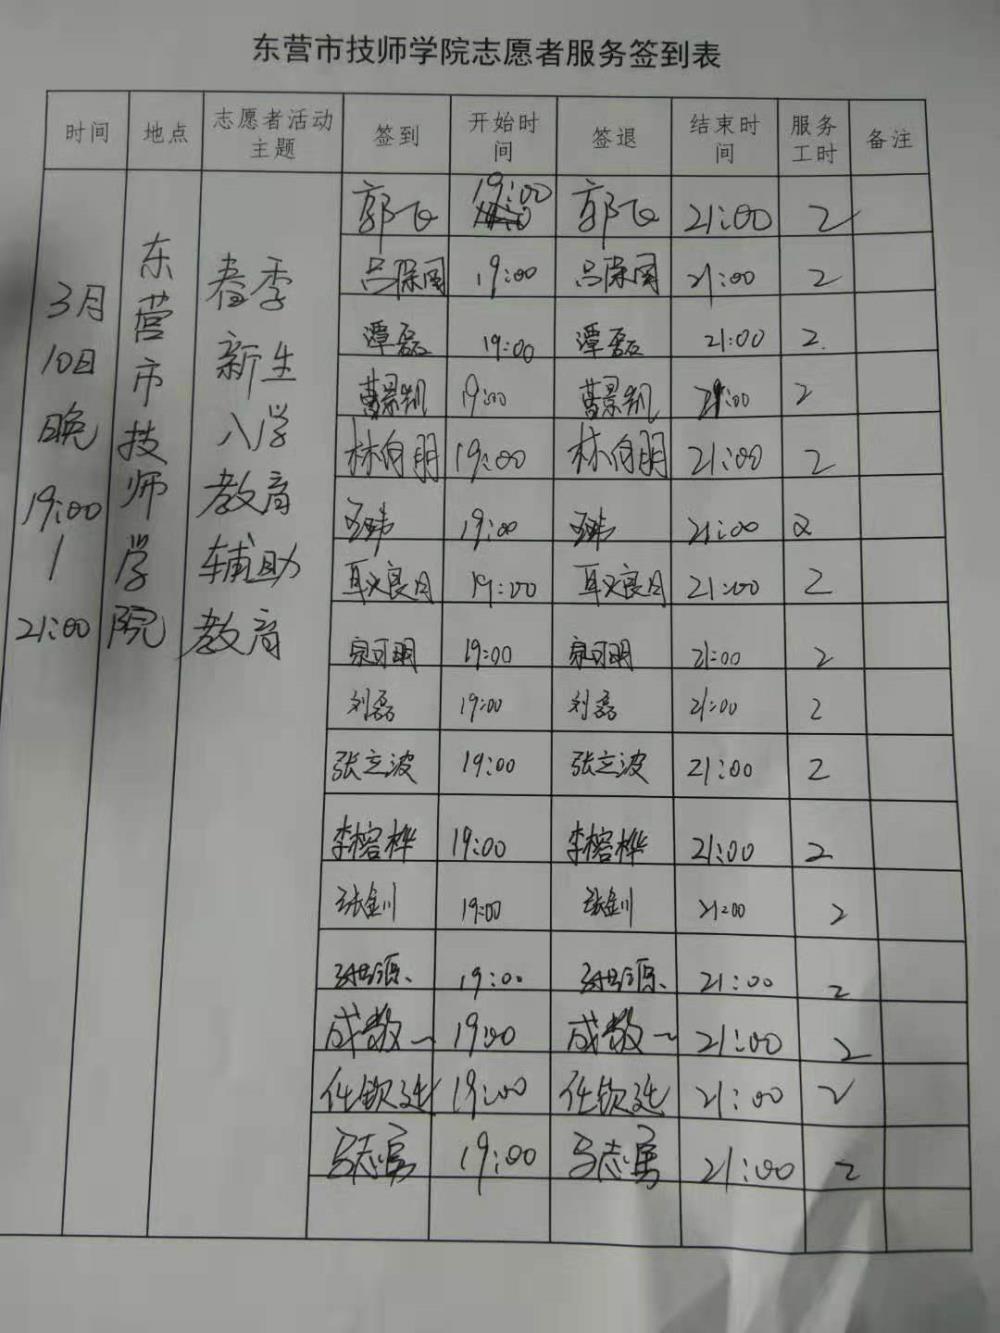 东营市技师学院志愿者服务签到表
时间 地点 志愿者活动主题 签到 开始时间 签退 结束时间 服务工时 备注
3月10日晚19:00|21:00 东营市技师学院 春季新生入学教育辅助教育
郭飞 19:00 郭飞 21:00 2
吕保国 19:00 吕保国 21:00 2
潭磊 19:00 潭磊 21:00 2.
曹景凯 19:00 曹景凯 21:00 2
林向明 19:00 林向明 21:00 2
19:00 21:00 2
19:00 21:00 2
19:00 21:00 2
刘磊 19:00 刘磊 21:00 2
张立波 19:00 张立波 21:00 2
李榕桦 19:00 李榕桦 21:00 2
张金川 19:00 张金川 21:00 2
19:00 21:00 2
成敬一 19:00 成敬一 21:00 2
任钦廷 19:00 任钦廷 21:00 2
马志勇 19:00 马志勇 21:00 2